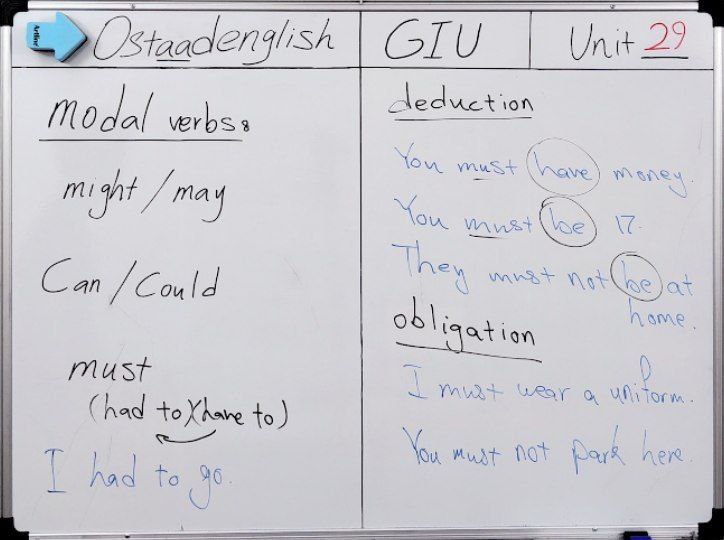 Artline
Ostaadenglish
GIU
Unit 29
modal verbs:
might / may
Can / Could
must
(had to)(have to)
I had to go.
deduction
You must have money.
You must be 17.
They must not be at
home.
obligation
I must wear a uniform.
You must not park here.